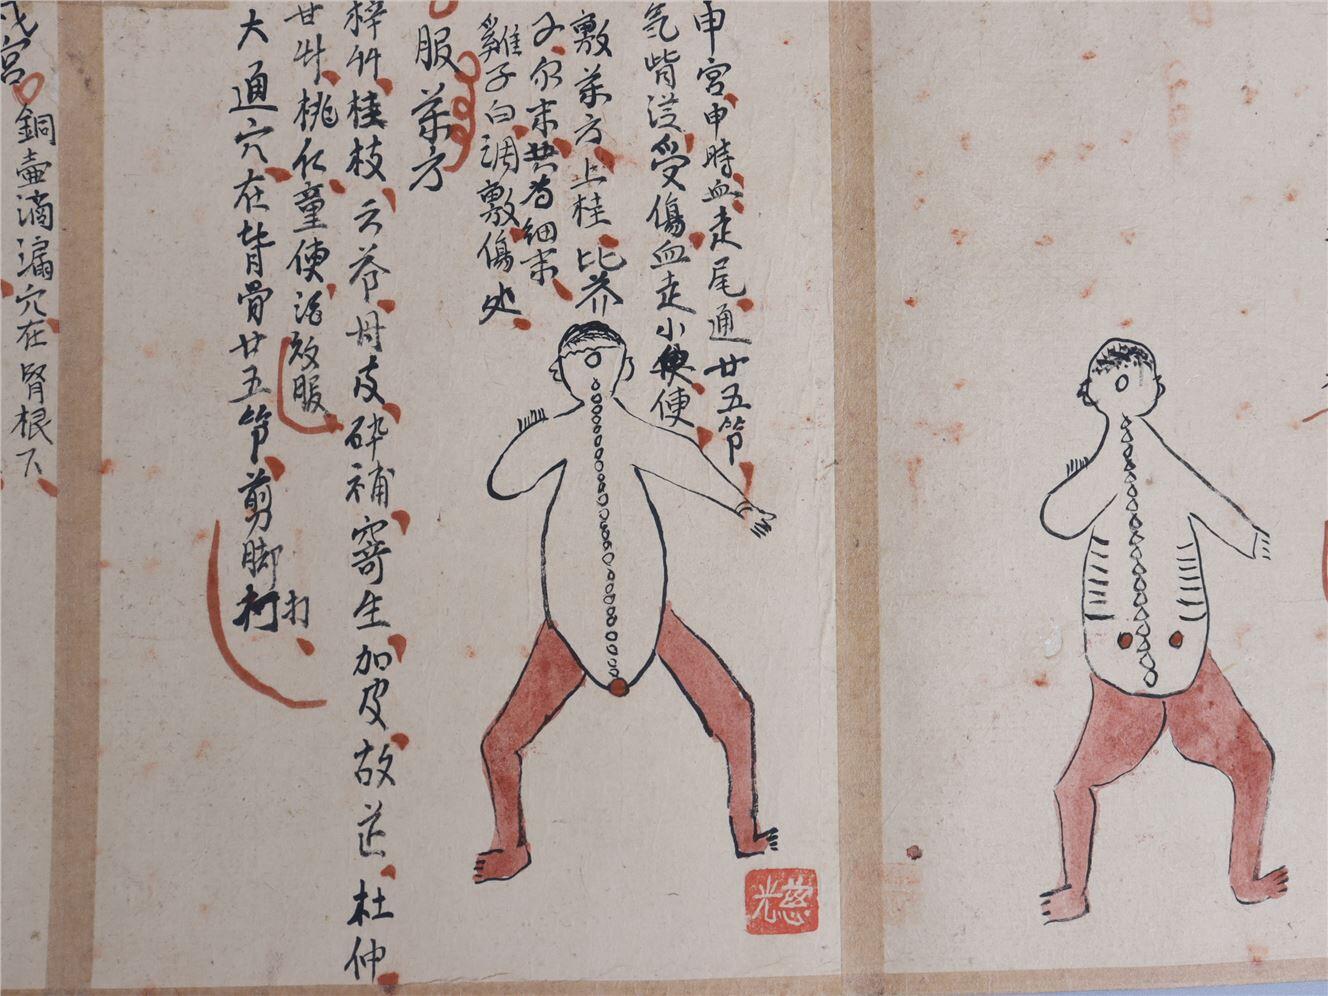 申宮申時血走尾通廿五節
氣背從受傷血走小便便
敷藥方上桂比芥
子 末共為細末
雞子白調敷傷处
服藥方
梓竹桂枝云苓丹皮碎補寄生加皮故芷杜仲
甘草桃仁童便 效服
大通穴在背骨廿五節剪脚打
宮
銅壺滴漏穴在腎根下
慈光